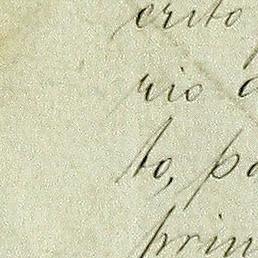 crito
rio
to, pa
prin